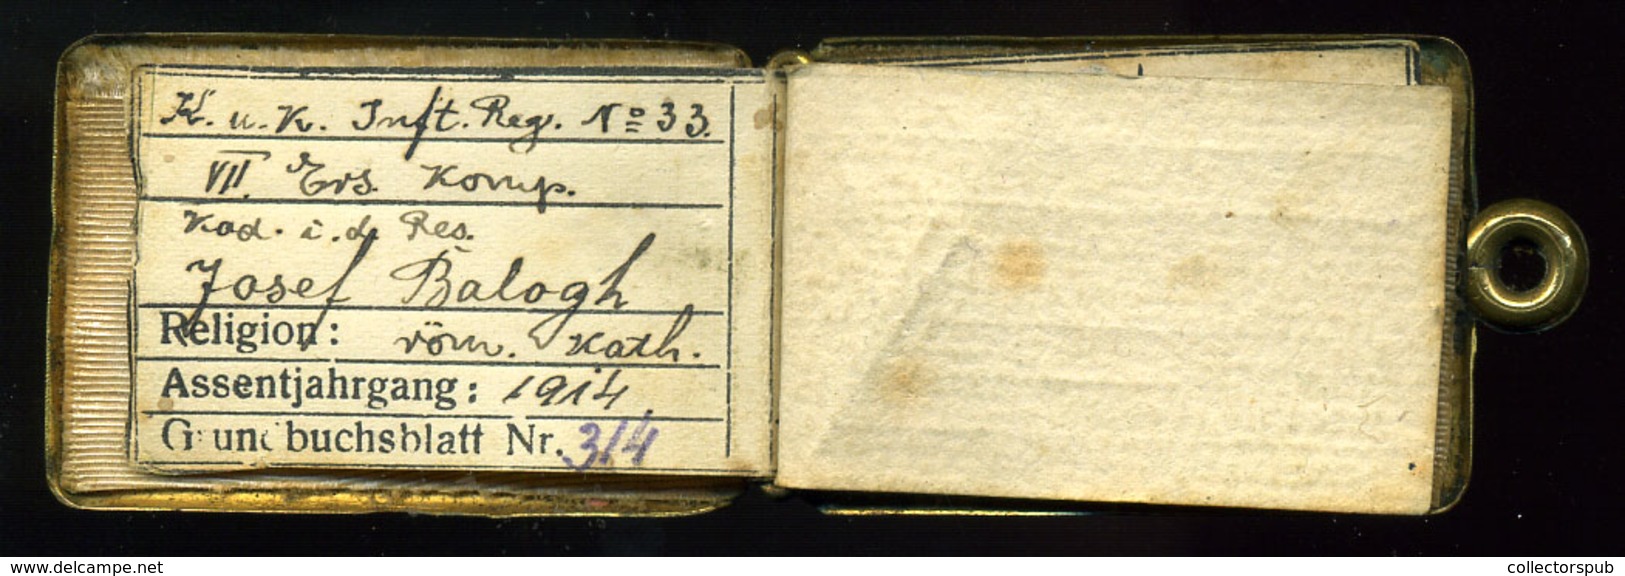 K. u. K. Inft. Reg. No 33.
VII. Ers. Komp.
Kad. i. d. Res.
Josef Balogh
Religion: röm. kath.
Assentjahrgang: 1914
Grundbuchsblatt Nr. 314
www.delcampe.net
collectorspub